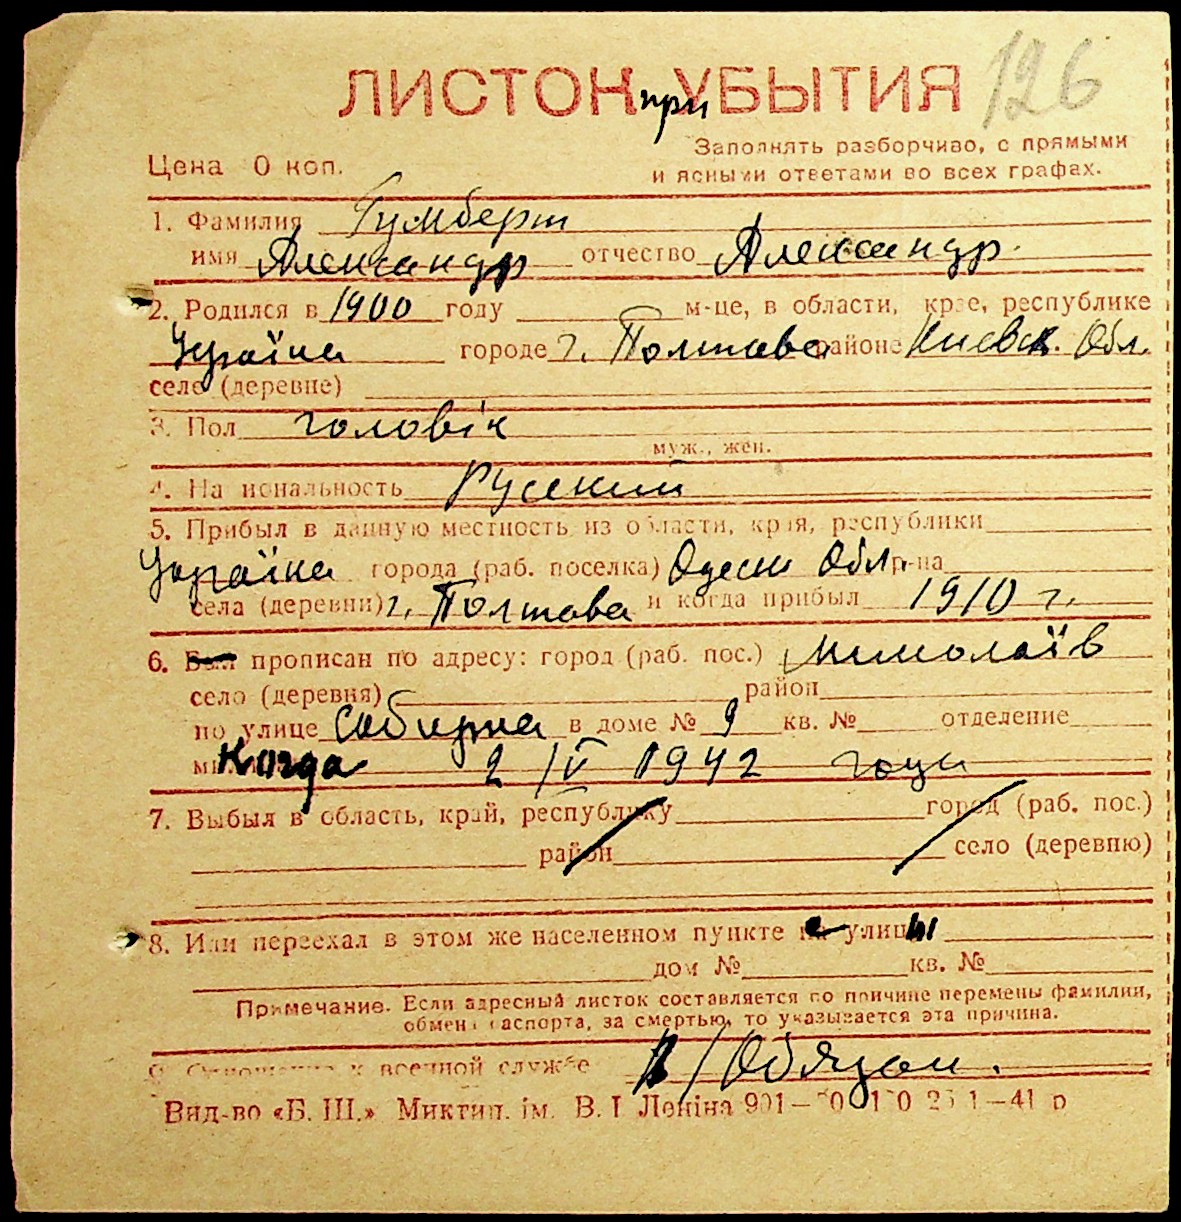 126
ЛИСТОК УБЫТИЯ
при
Заполнять разборчиво, с прямыми
Цена 0 коп.
и ясными ответами во всех графах.
1. Фамилия Гумберт
имя Александр отчество Александр.
2. Родился в 1900 году м-це, в области, крае, республике
Україна городе г. Полтава районе Киевск. Обл.
селе (деревне)
3. Пол чоловік
муж., жен.
4. Национальность Русский
5. Прибыл в данную местность из области, края, республики
Україна города (раб. поселка) Одесь Обл. р-на
села (деревни) г. Полтава и когда прибыл 1910 г.
6. Был прописан по адресу: город (раб. пос.) Миколаїв
село (деревня) район
по улице в доме № 9 кв. № отделение
Когда 2/IV 1942 года
7. Выбыл в область, край, республику город (раб. пос.)
район село (деревню)
8. Или переехал в этом же населенном пункте с улицы
дом № кв. №
Примечание. Если адресный листок составляется по причине перемены фамилии,
обмена паспорта, за смертью, то указывается эта причина.
9. Отношение к военной службе В/Обязан.
Вид-во «Б. Ш.» Миктип. ім. В. І Леніна 901 – 41 р